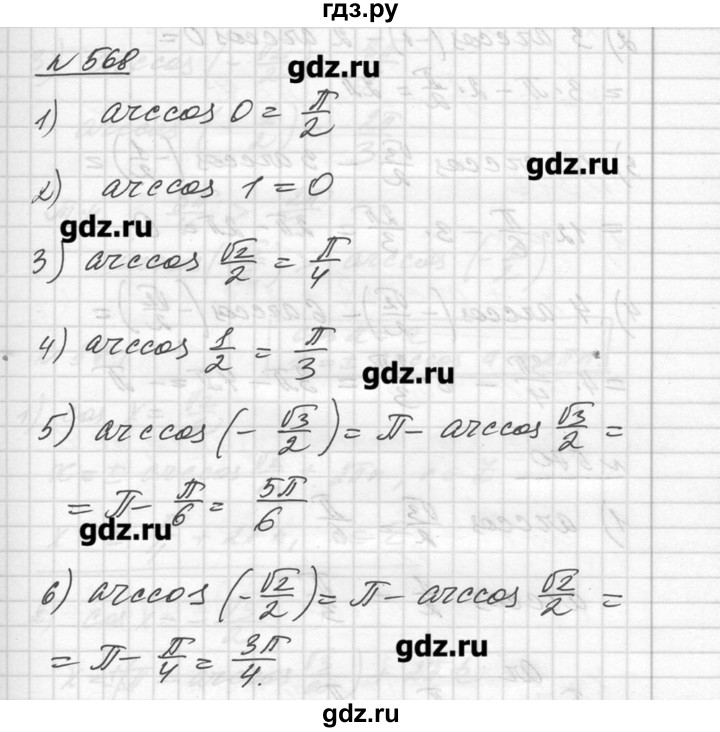 гдз.ру
№ 568
gdz.ru
1) arccos 0 = π/2
gdz.ru
2) arccos 1 = 0
gdz.ru
3) arccos √2/2 = π/4
4) arccos 1/2 = π/3
gdz.ru
5) arccos (- √3/2) = π - arccos √3/2 =
= π - π/6 = 5π/6
gdz.ru
6) arccos (-√2/2) = π - arccos √2/2 =
gdz.ru
= π - π/4 = 3π/4.
gdz.ru